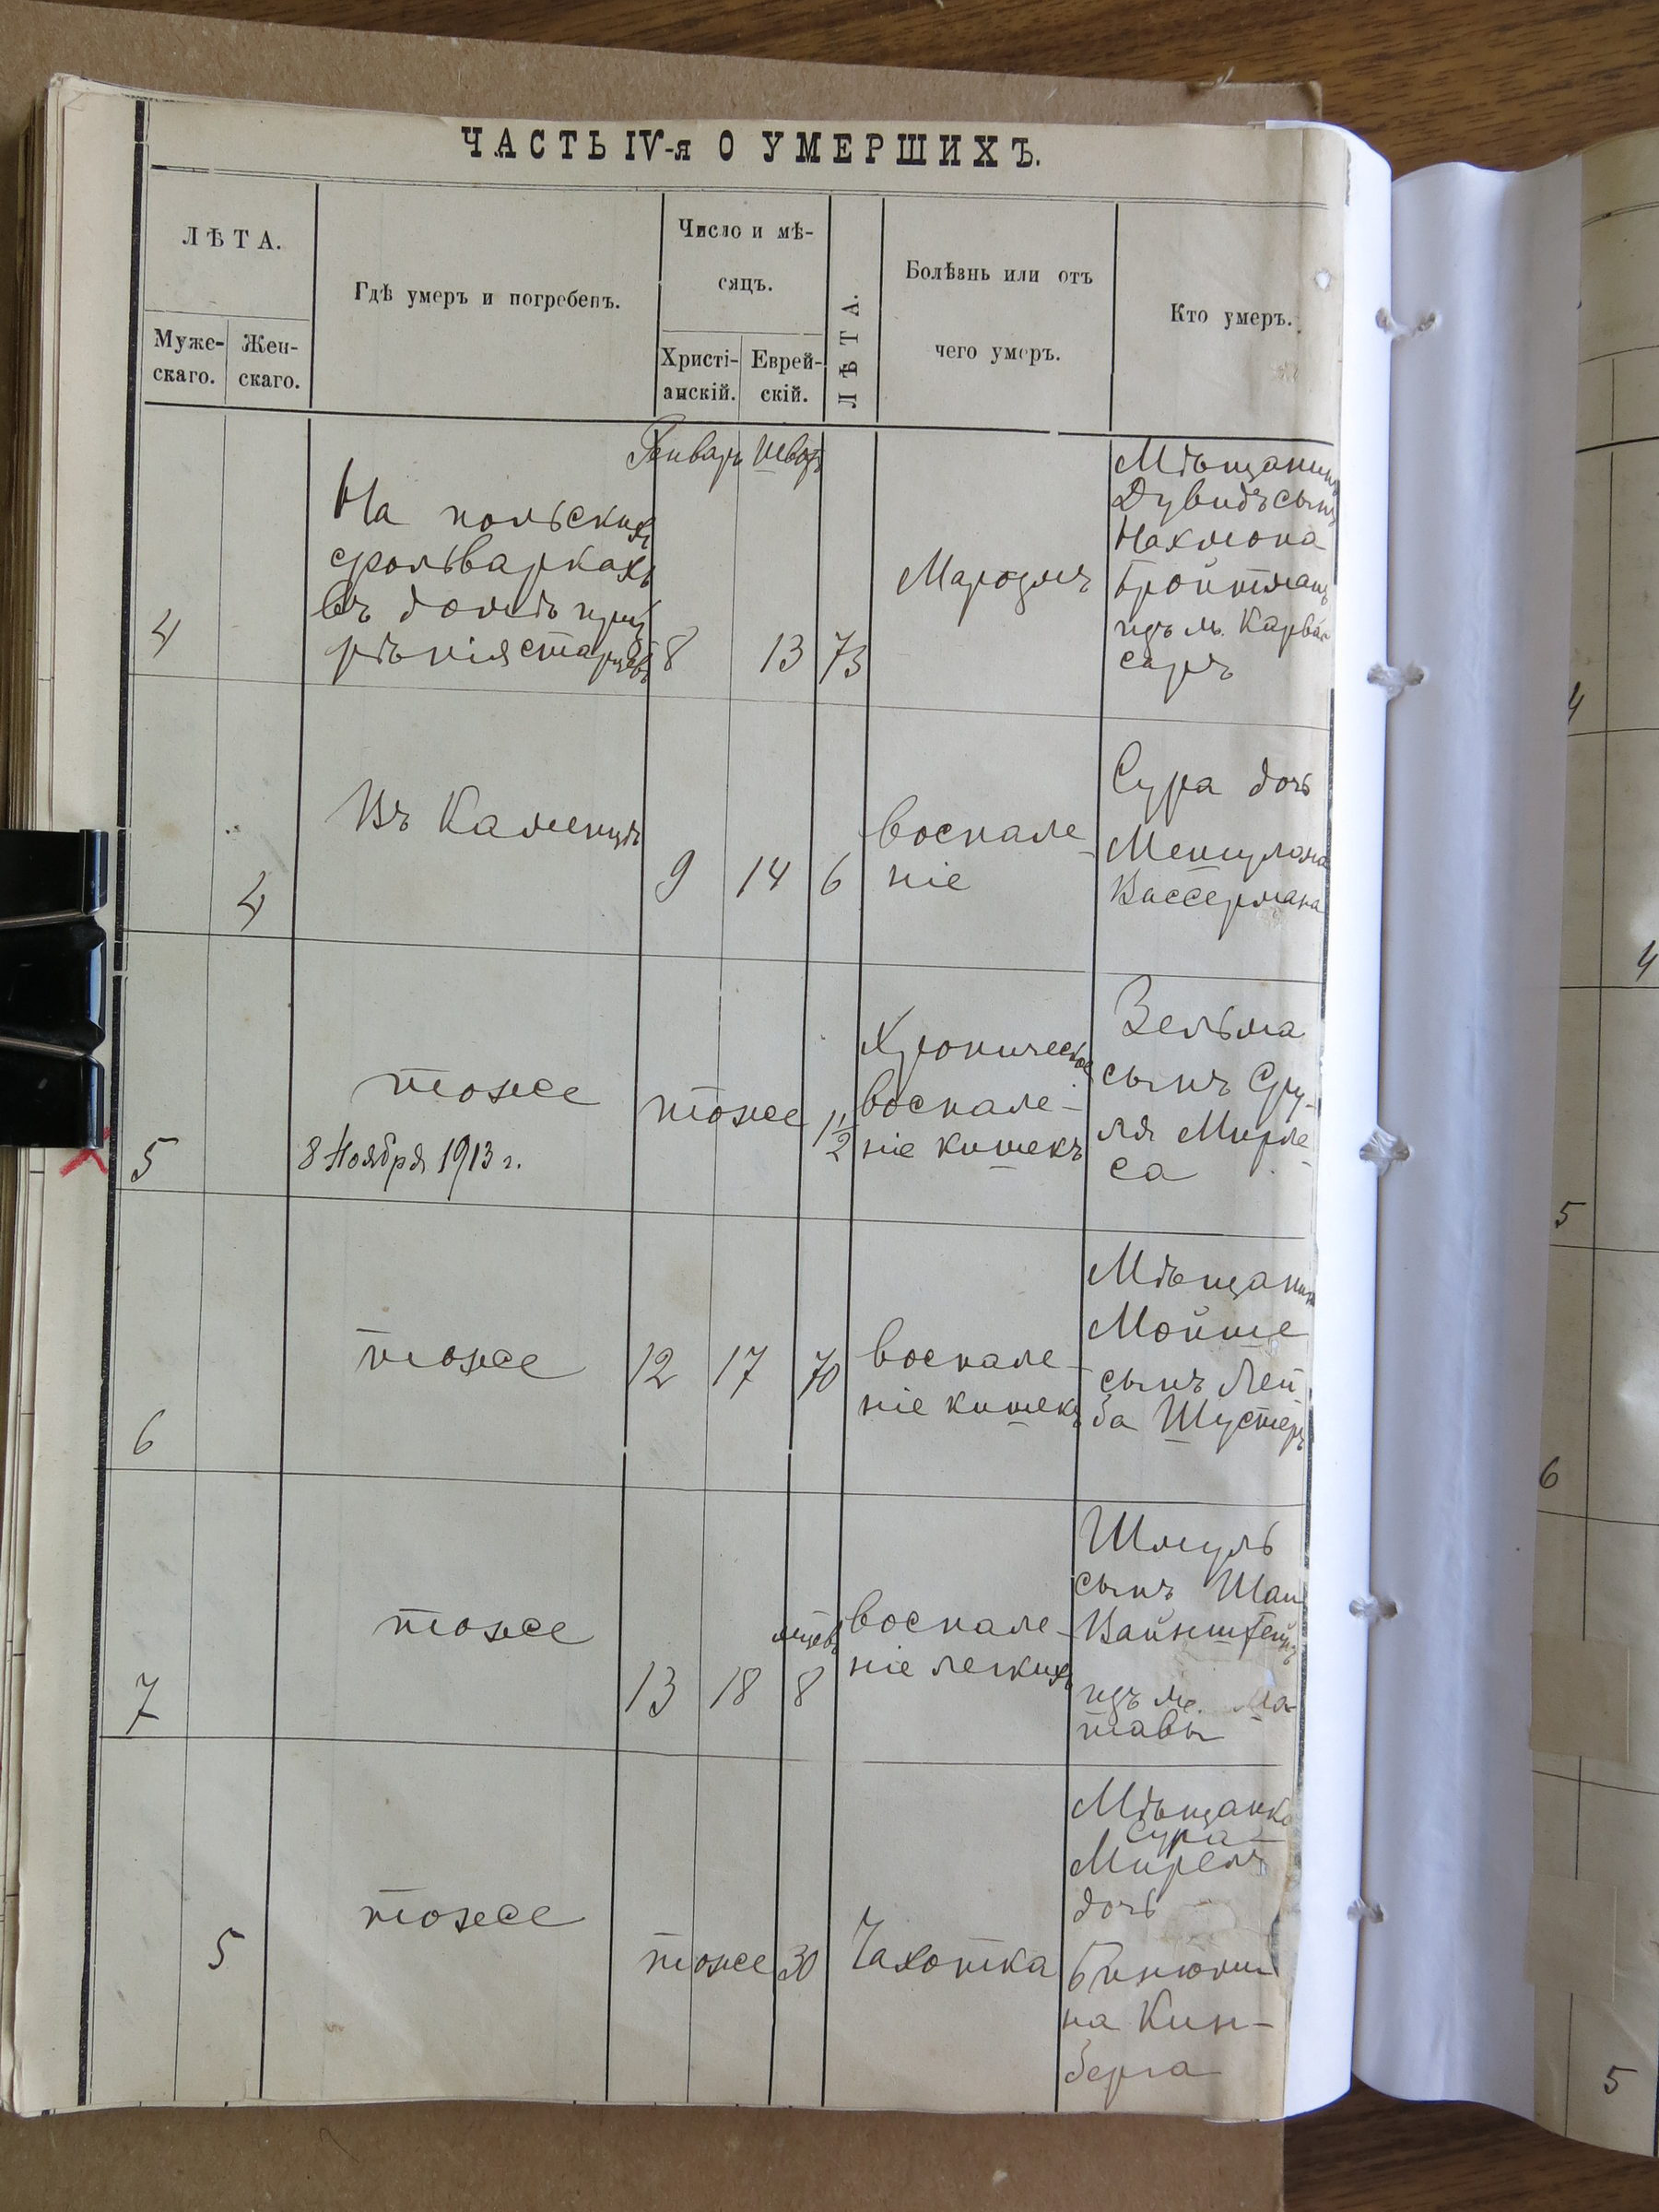 ЧАСТЬ IV-я О УМЕРШИХЪ.
ЛѢТА.
Муже-
скаго.
Жен-
скаго.
Гдѣ умеръ и погребенъ.
Число и мѣ-
сяцъ.
Христі-
анскій.
Еврей-
скій.
ЛѢТА.
Болѣзнь или отъ
чего умеръ.
Кто умеръ.
Январь Шватъ
4
На польскихъ
фольваркахъ
въ домѣ приз
рѣнія старцевъ
8
13
73
Маразмъ
Мѣщанинъ
Дувидъ сынъ
Нахмона
Бройтманъ
изъ м. Карва
саръ
4
Въ Каменцѣ
9
14
6
воспале-
ніе
Сура дочь
Мешулома
Вассермана
5
тоже
8 Ноября 1913 г.
тоже
1 1/2
Хроническое
воспале-
ніе кишекъ
Зельма
сынъ Сру-
ля Мирле-
са
6
тоже
12
17
70
воспале-
ніе кишекъ
Мѣщанинъ
Мойше
сынъ Лей
ба Шустеръ
7
тоже
13
18
мѣсяцевъ
8
воспале-
ніе легкихъ
Шмуль
сынъ Шаи
Вайнштейнъ
изъ м. Ма-
ковъ
5
тоже
тоже
30
Чахотка
Мѣщанка
Сура-
Мирель
дочь
Биньоми
на Кин-
берга
4
4
5
6
5